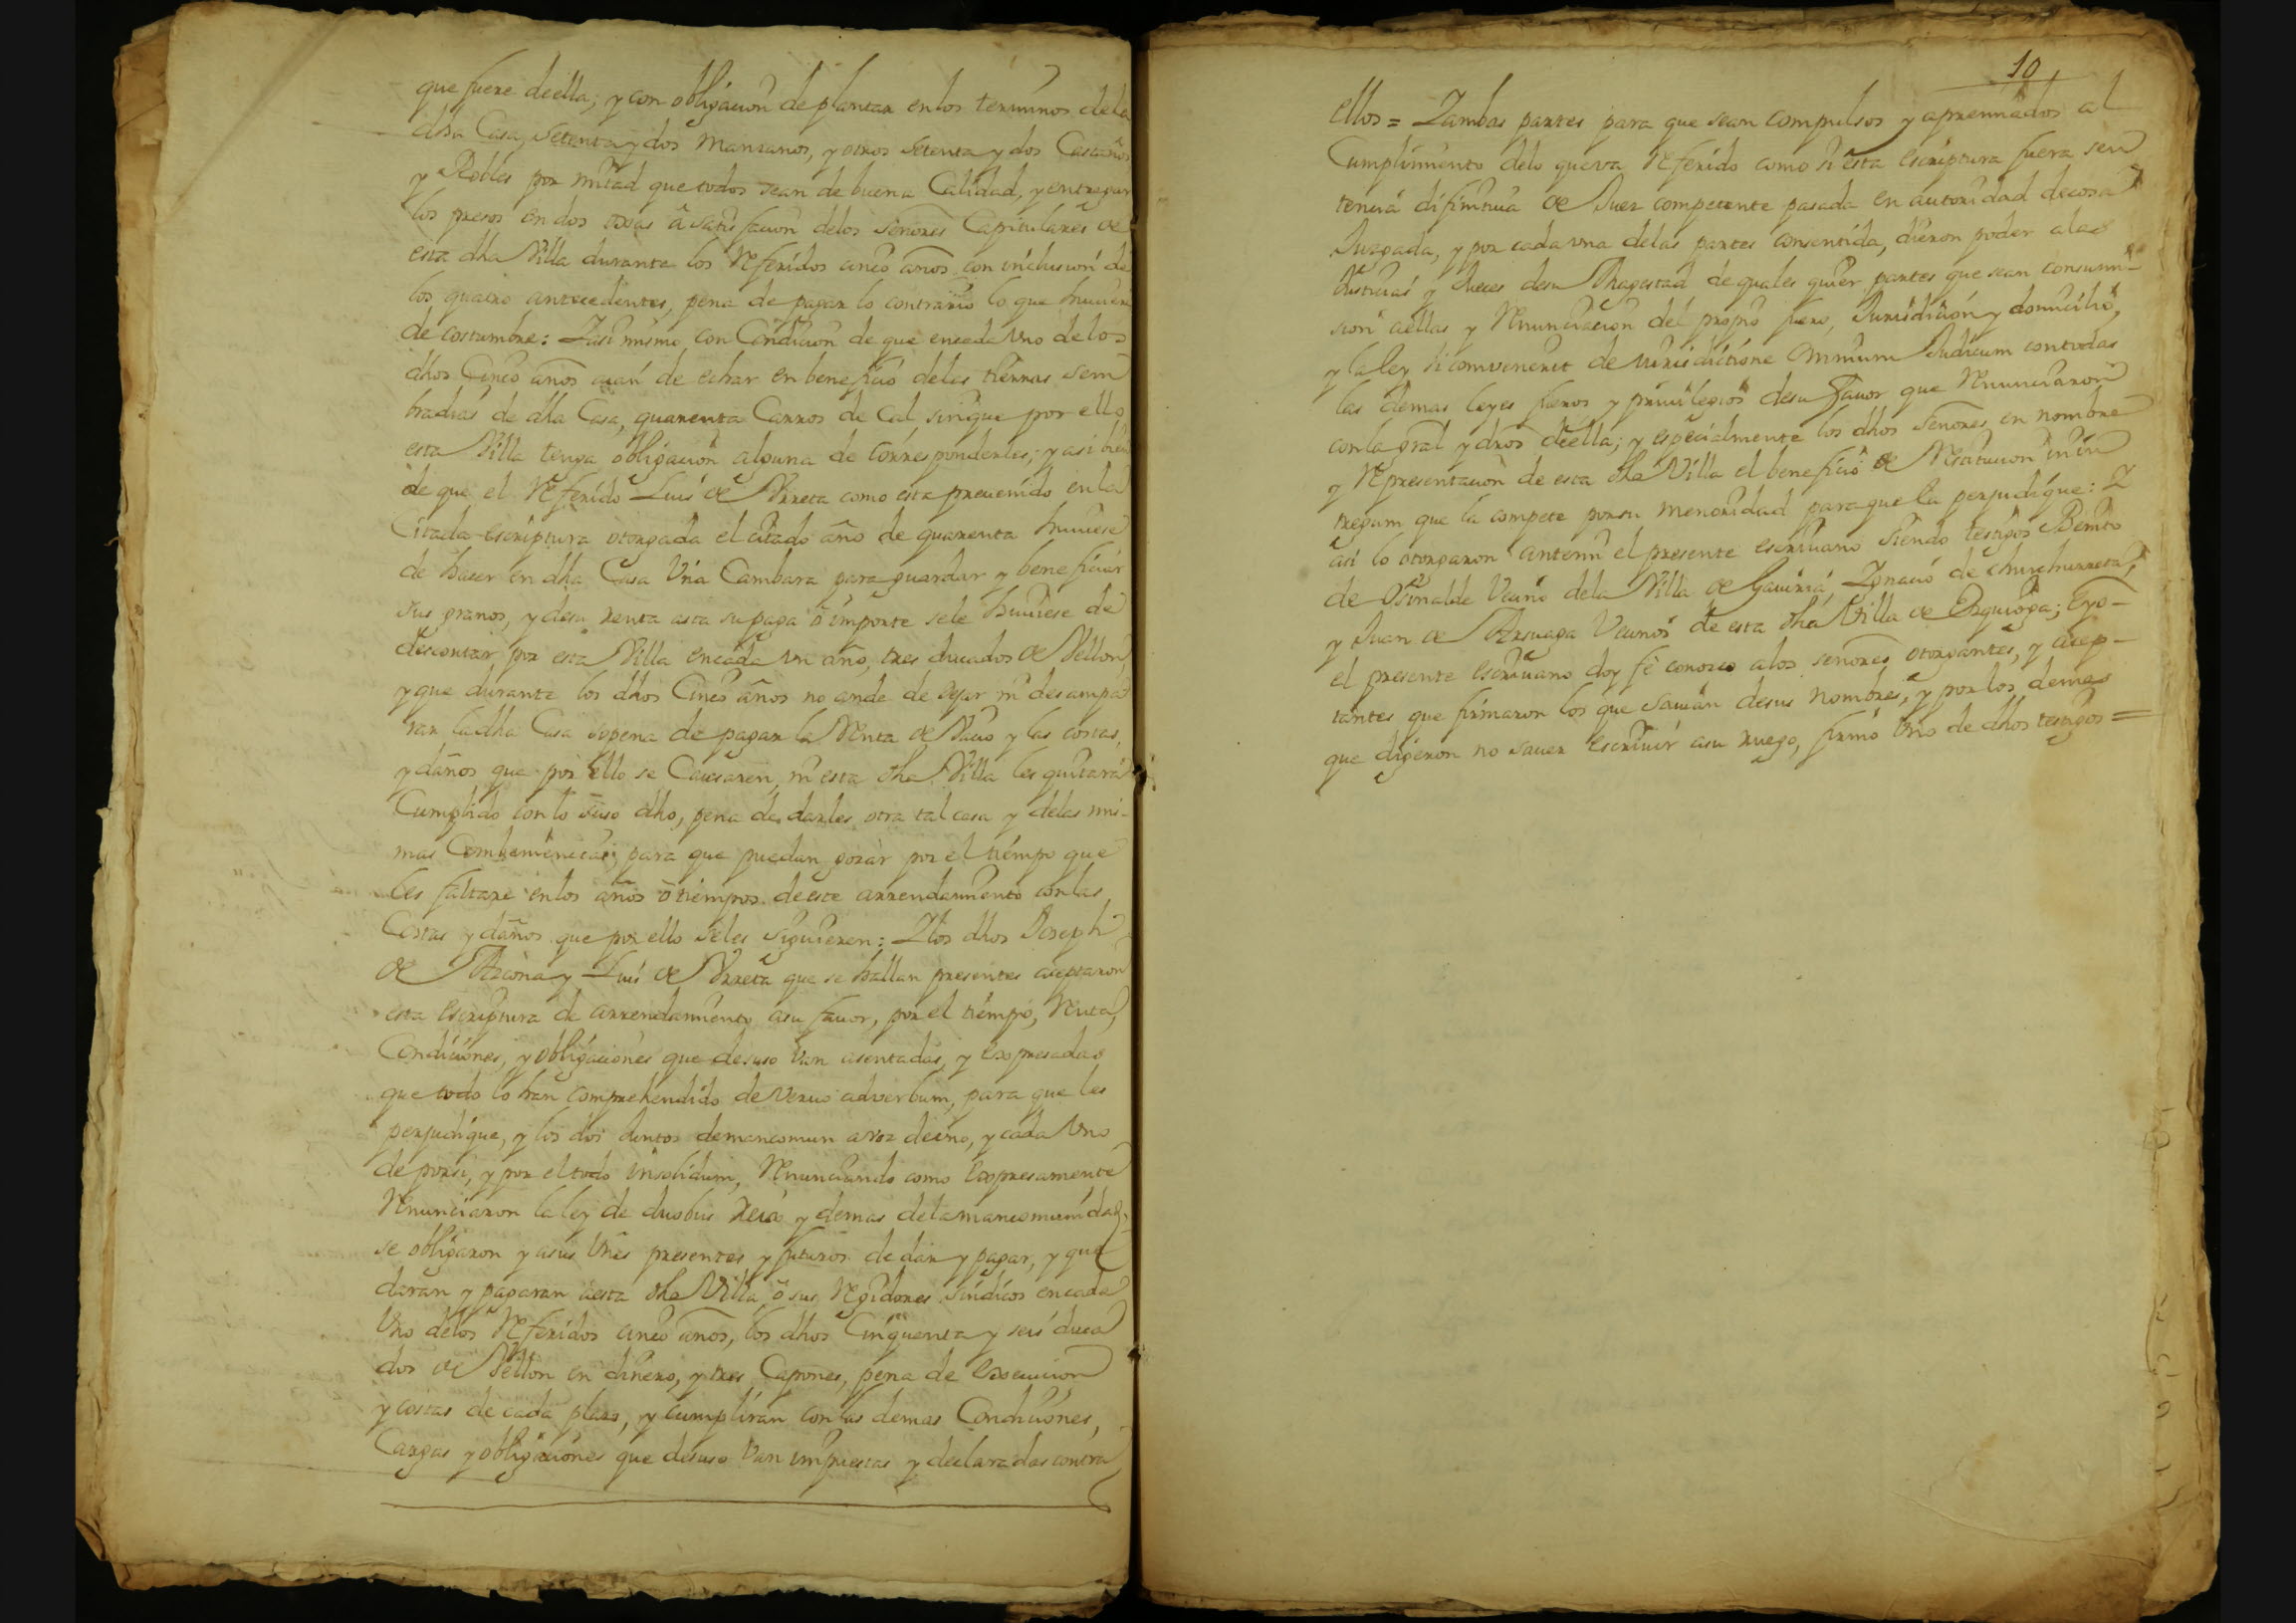 que fuere deella; y con obligacion de plantar enlos terminos dela
dha Casa, Setenta y dos Manzanos, y otros Setenta y dos Castaños
y Robles por mitad que todos sean de buena Calidad, y entregar
los presos en dos oxas â satisfacion delos Señores Capitulares de
esta dha Villa durante los Referidos cinco años con inclusion de
los quatro antecedentes, pena de pagar lo contrario lo que huuiere
de costumbre: Y asi mismo con Condicion de que encada Vno delos
dhos Cinco años aian de echar en beneficio delas tierras sem
bradias de dha Casa, quarenta Carros de Cal, sin que por ello
esta Villa tenga obligacion alguna de corresponderles; y asi bien
de que el Referido Luis de Vrreta como esta preuenido enla
Citada escriptura otorgada el citado año de quarenta huuiese
de hacer en dha Casa Vna Cambara para guardar y beneficiar
sus granos, y desu renta asta su paga ô importe sele huuiese de
descontar por esta Villa encada un año, tres ducados de Vellon,
y que durante los dhos Cinco años no ande de dejar ni desampa
rar la dha Casa sopena de pagar la Renta de Vacio y las costas,
y daños que por ello se Causaren, ni esta dha Villa les quitará
Cumplido con lo suso dho, pena de darles otra tal casa y delas mis-
mas Combeniencias, para que puedan gozar por el tiempo que
les faltare enlos años ô tiempos deeste arrendamiento con las
Costas y daños que por ello seles siguieren: Y los dhos Joseph
de Azcona y Luis de Vrreta que se hallan presentes aceptaron
esta escriptura de arrendamiento asu fauor, por el tiempo, Renta,
Condiciones, y obligaciones que desuso van asentadas, y expresadas
que todo lo han comprehendido de veruo adverbum, para que les
perjudique, y los dos Juntos demancomun a voz deuno, y cada Vno
de porsi, y por el todo insolidum, Renunciando como expresamente
Renunciaron la ley de duobus reis y demas dela mancomunidad,
se obligaron y asus Vnes presentes y futuros de dar y pagar, y que
daran y pagaran aesta dha Villa, ô sus Regidores Sindicos encada
Vno delos Referidos cinco años, los dhos Cinquenta y seis duca
dos de Vellon en dinero, y tres Capones, pena de execucion
y costas de cada plazo, y cumpliran con las demas Condiciones,
Cargas y obligaciones que desuso van impuestas y declaradas contra
10
ellos = Y ambas partes para que sean compulsos y apremiados al
Cumplimiento delo que va Referido como si esta escriptura fuera sen
tencia difinitiua de Juez competente pasada en autoridad decosa
Juzgada, y por cada vna delas partes consentida, dieron poder alas
Justicias y Jueces desu Magestad de quales quier partes que sean consumi-
sion aellas y Renunciacion del propio fuero, Jurisdicion y domicilio,
y la ley si combenerit de Jurisdictione Omnium Judicum con todas
las demas leyes fueros y priuilegios desu fauor que Renunciaron
con la gral y dros deella; y especialmente los dhos Señores en nombre
y Representacion de esta dha Villa el beneficio de Restitucion in in
tregum que la compete porsu menoridad para que la perjudique: Y
asi lo otorgaron antemi el presente escriuano siendo testigos Benito
de Osinalde Vecino dela Villa de Gauiria, Ygnacio de Churchurreta,
y Juan de Arsuaga Vecinos de esta dha Villa de Ezquioga; E yo
el presente escriuano doy fe conozco alos señores otorgantes, y acep-
tantes que firmaron los que sauian desus nombres, y por los demas
que digeron no sauer escriuir asu ruego, firmó Vno de dhos testigos =